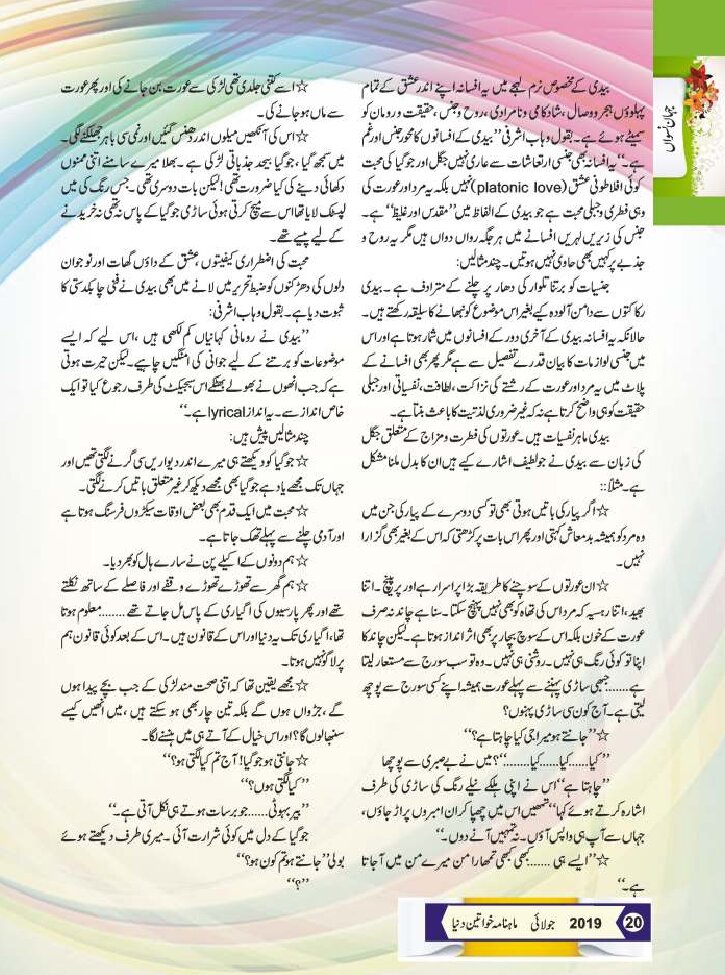 جہان نسواں
بیدی کے مخصوص نرم لہجے میں یہ افسانہ اپنے اندر عشق کے تمام
پہلوؤں ہجر و وصال، شادکامی و نامرادی، روح و جنس، حقیقت و رومان کو
سمیٹے ہوئے ہے۔ بقول وہاب اشرفی ”بیدی کے افسانوں کا محور جنس اور غم
ہے۔“ یہ افسانہ بھی جنسی ارتعاشات سے عاری نہیں جگل اور جوگیا کی محبت
کوئی افلاطونی عشق (platonic love) نہیں بلکہ یہ مرد اور عورت کی
وہی فطری و جبلی محبت ہے جو بیدی کے الفاظ میں ”مقدس اور غلیظ“ ہے۔
جنس کی زیریں لہریں افسانے میں ہر جگہ رواں دواں ہیں مگر یہ روح و
جذبے پر کہیں بھی حاوی نہیں ہوتیں۔ چند مثالیں:
جنسیات کو برتنا تلوار کی دھار پر چلنے کے مترادف ہے۔ بیدی
رکاکتوں سے دامن آلودہ کیے بغیر اس موضوع کو نبھانے کا سلیقہ رکھتے ہیں۔
حالانکہ یہ افسانہ بیدی کے آخری دور کے افسانوں میں شمار ہوتا ہے اور اس
میں جنسی لوازمات کا بیان قدرے تفصیل سے ہے مگر پھر بھی افسانے کے
پلاٹ میں یہ مرد اور عورت کے رشتے کی نزاکت، لطافت، نفسیاتی اور جبلی
حقیقت کو ہی واضح کرتا ہے نہ کہ غیر ضروری لذتیت کا باعث بنتا ہے۔
بیدی ماہر نفسیات ہیں۔ عورتوں کی فطرت و مزاج کے متعلق جگل
کی زبان سے بیدی نے جو لطیف اشارے کیے ہیں ان کا بدل ملنا مشکل
ہے۔ مثلاً::
☆ اگر پیار کی باتیں ہوتی بھی تو کسی دوسرے کے پیار کی جن میں
وہ مرد کو ہمیشہ بدمعاش کہتی اور پھر اس بات پر کڑھتی کہ اس کے بغیر بھی گزارا
نہیں۔
☆ ان عورتوں کے سوچنے کا طریقہ بڑا پراسرار ہے اور پرپیچ۔ اتنا
بھید، اتنا رہسیہ کہ مرد اس کی تھاہ کو بھی نہیں پہنچ سکتا۔ سنا ہے چاند نہ صرف
عورت کے خون بلکہ اس کے سوچ بچار پر بھی اثر انداز ہوتا ہے۔ لیکن چاند کا
اپنا تو کوئی رنگ ہی نہیں۔ روشنی ہی نہیں۔ وہ تو سب سورج سے مستعار لیتا
ہے.......جبھی ساڑی پہننے سے پہلے عورت ہمیشہ اپنے کسی سورج سے پوچھ
لیتی ہے۔ آج کون سی ساڑی پہنوں؟
☆ ”جانتے ہو میرا جی کیا چاہتا ہے؟“
”کیا......کیا......کیا.......:“؟ میں نے بے صبری سے پوچھا
”چاہتا ہے“ اس نے اپنی ہلکے نیلے رنگ کی ساڑی کی طرف
اشارہ کرتے ہوئے کہا ”تمھیں اس میں چھپا کر ان امبروں پر اڑ جاؤں،
جہاں سے آپ ہی واپس آؤں۔ نہ تمہیں آنے دوں۔“
☆ ”ایسے ہی ......کبھی کبھی تمھارا من میرے من میں آ جاتا
ہے۔“
☆ اسے کتنی جلدی تھی لڑکی سے عورت بن جانے کی اور پھر عورت
سے ماں ہو جانے کی۔
☆ اس کی آنکھیں میلوں اندر دھنس گئیں اور نمی سی باہر جھلکنے لگی۔
میں سمجھ گیا، جوگیا بیحد جذباتی لڑکی ہے۔ بھلا میرے سامنے اتنی ممنون
دکھائی دینے کی کیا ضرورت تھی! لیکن بات دوسری تھی۔ جس رنگ کی میں
لپسٹک لایا تھا اس سے میچ کرتی ہوئی ساڑی جوگیا کے پاس نہ تھی نہ خریدنے
کے لیے پیسے تھے۔
محبت کی اضطراری کیفیتوں، عشق کے داؤں گھات اور نوجوان
دلوں کی دھڑکنوں کو ضبط تحریر میں لانے میں بھی بیدی نے فنی چابکدستی کا
ثبوت دیا ہے۔ بقول وہاب اشرفی:
”بیدی نے رومانی کہانیاں کم لکھی ہیں، اس لیے کہ ایسے
موضوعات کو برتنے کے لیے جوانی کی امنگیں چاہیے۔ لیکن حیرت ہوتی
ہے کہ جب انھوں نے بھولے بھٹکے اس سبجیکٹ کی طرف رجوع کیا تو ایک
خاص انداز سے۔ یہ انداز lyrical ہے۔“
چند مثالیں پیش ہیں:
☆ جوگیا کو دیکھتے ہی میرے اندر دیواریں سی گرنے لگتی تھیں اور
جہاں تک مجھے یاد ہے جوگیا بھی مجھے دیکھ کر غیر متعلق باتیں کرنے لگتی۔
☆ محبت میں ایک قدم بھی بعض اوقات سیکڑوں فرسنگ ہوتا ہے
اور آدمی چلنے سے پہلے تھک جاتا ہے۔
☆ ہم دونوں کے اکیلے پن نے سارے ہال کو بھر دیا۔
☆ ہم گھر سے تھوڑے تھوڑے وقفے اور فاصلے کے ساتھ نکلتے
تھے اور پھر پارسیوں کی اگیاری کے پاس مل جاتے تھے ........معلوم ہوتا
تھا، اگیاری تک یہ دنیا اور اس کے قانون ہیں۔ اس کے بعد کوئی قانون ہم
پر لاگو نہیں ہوتا۔
☆ مجھے یقین تھا کہ اتنی صحت مند لڑکی کے جب بچے پیدا ہوں
گے، جڑواں ہوں گے بلکہ تین چار بھی ہو سکتے ہیں، میں انھیں کیسے
سنبھالوں گا؟ اور اس خیال کے آتے ہی میں ہنسنے لگا۔
☆ جانتی ہو جوگیا! آج تم کیا لگتی ہو؟“
”کیا لگتی ہوں؟“
”بیر بہوٹی......جو برسات ہوتے ہی نکل آتی ہے۔“
جوگیا کے دل میں کوئی شرارت آئی۔ میری طرف دیکھتے ہوئے
بولی ”جانتے ہو تم کون ہو؟“
”؟“
20 2019 جولائی ماہنامہ خواتین دنیا